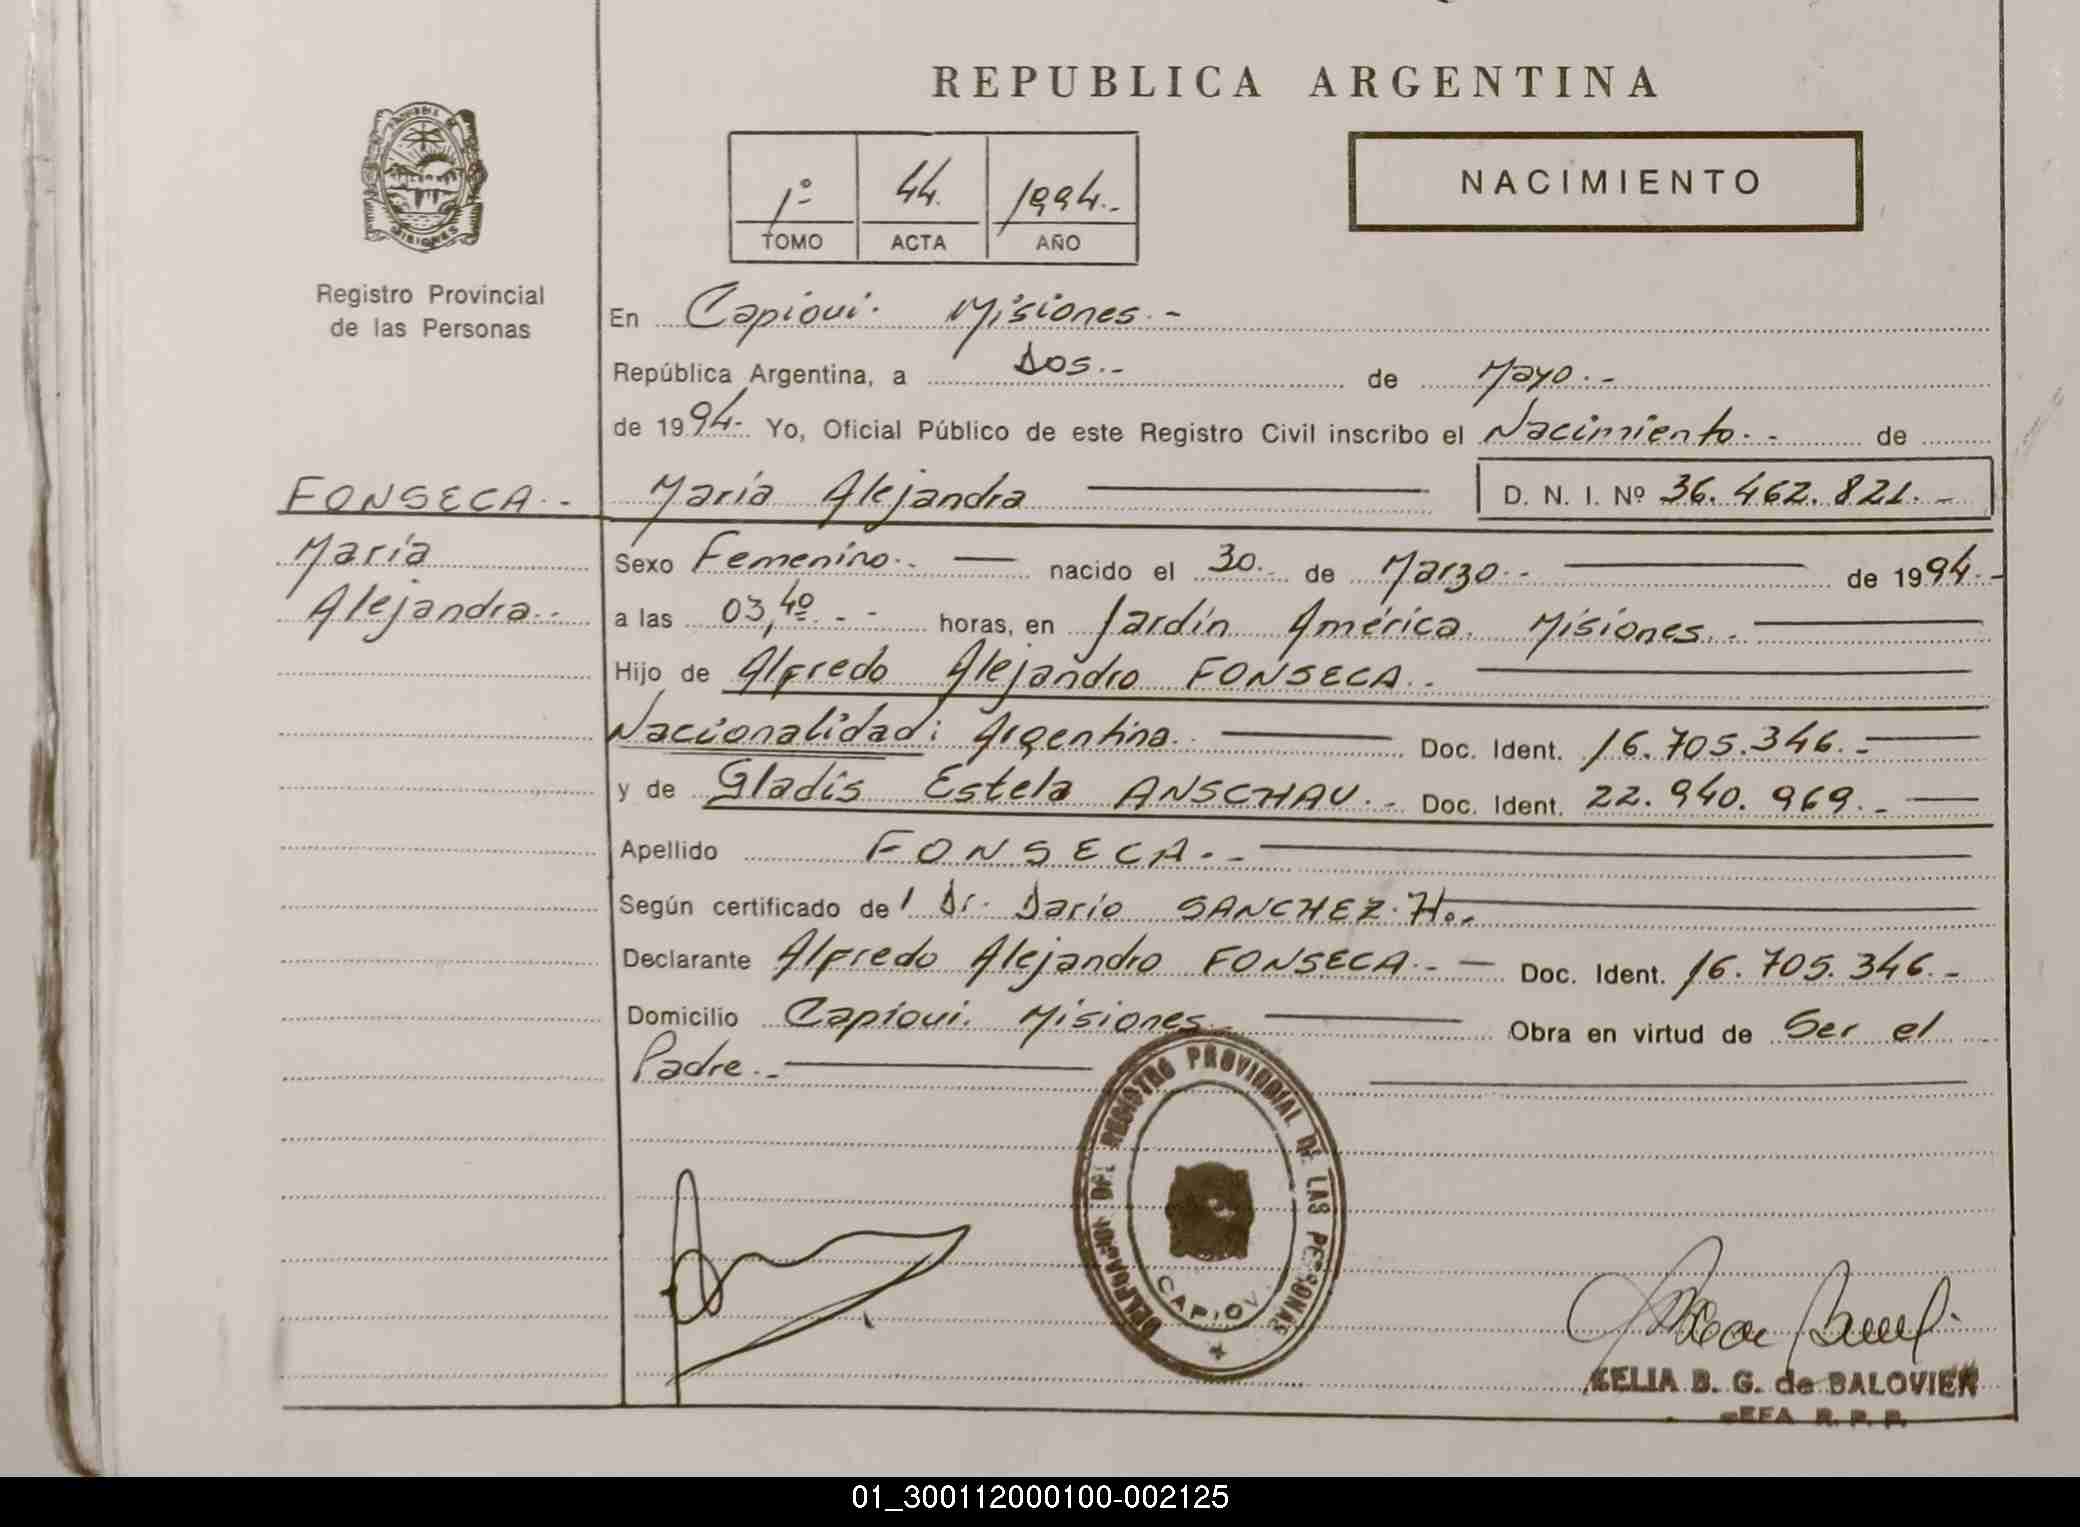 REPUBLICA ARGENTINA
PROVINCIA DE
MISIONES
1º 44. 1994.-
TOMO ACTA AÑO
NACIMIENTO
Registro Provincial
de las Personas
En Capiovi. Misiones.-
República Argentina, a Dos.- de Mayo.-
de 1994.- Yo, Oficial Público de este Registro Civil inscribo el Nacimiento.- de
FONSECA.- María Alejandra D. N. I. Nº 36.462.821.-
María
Alejandra.-
Sexo Femenino.- nacido el 30.- de Marzo.- de 1994.-
a las 03,40.- - horas, en Jardín América. Misiones.-
Hijo de Alfredo Alejandro FONSECA.-
Nacionalidad: Argentina.- Doc. Ident. 16.705.346.-
y de Gladis Estela ANSCHAU.- Doc. Ident. 22.940.969.-
Apellido FONSECA.-
Según certificado de l Dr. Darío SANCHEZ. H.-
Declarante Alfredo Alejandro FONSECA.- Doc. Ident. 16.705.346.-
Domicilio Capiovi. Misiones.- Obra en virtud de Ser el
Padre.-
DELEGACION DEL REGISTRO PROVINCIAL DE LAS PERSONAS
CAPIOVI
CELIA B. G. de BALOVIER
JEFA R. P. P.
01_300112000100-002125